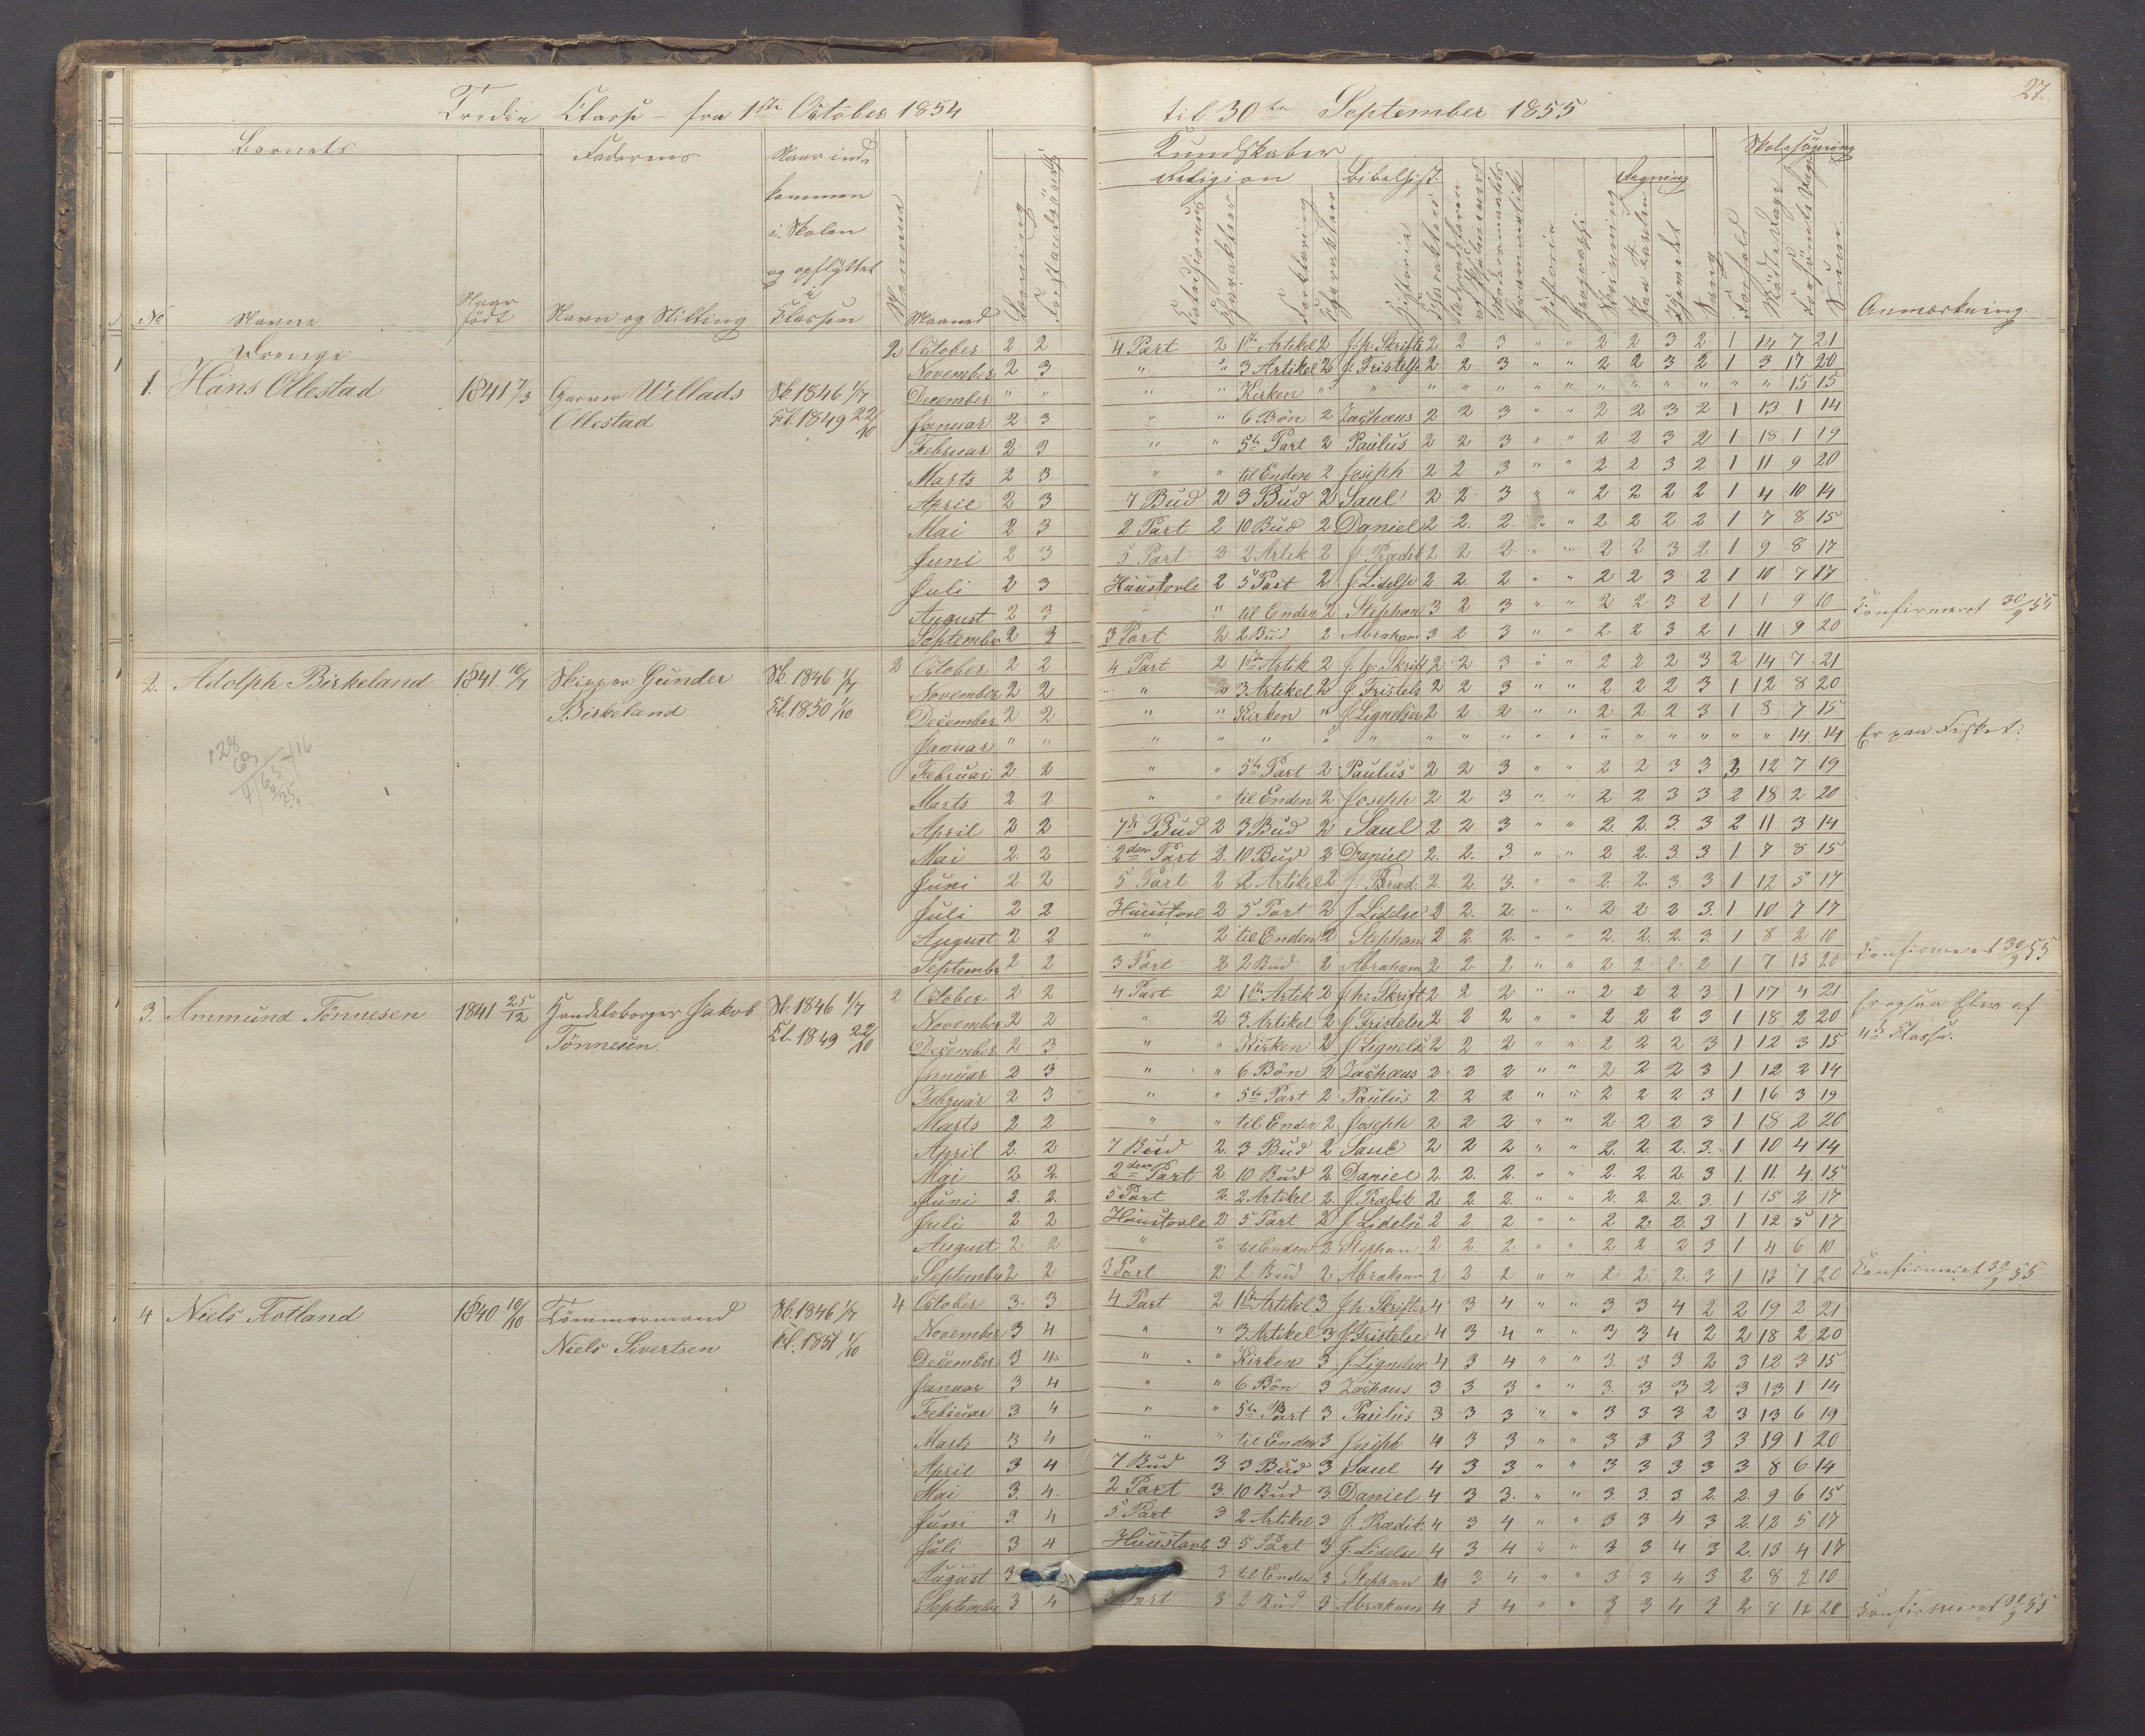 27.
Tredie Classe - fra 1ste October 1854 til 30te September 1855
Barnets
Faderens
Naar ind-
kommen
i Skolen
og opflyttet
i
Classen
No
Navne
Naar
födt
Navn og Stilling
Maaned
Læsning
Kundskaber
Religion
Bibelhist.
Regning
Skolesögning
Historie
Geografi
Skrivning
Paa Tavlen
Hjemmet
Sang
Forhold
Mödte Dage
Forsömte Dage
Sum
Anmærkning.
Drenge
1. Hans Ollestad 1841 7/3 Garver Willads Ollestad Sk. 1846 1/7 Cl. 1849 22/10
2 October 2 2 4 Part 2 1ste Artikel 2 J. h. Skrifte 2 2 3 " " 2 2 3 2 1 14 7 21
November 2 3 " " 3 Artikel 2 J. Fristelse 2 2 3 " " 2 2 3 2 1 3 17 20
December " " " " Kirken " " " " " " " " " " " " " 15 15
Januar 2 3 " " 6 Bön 2 Zachæus 2 2 3 " " 2 2 3 2 1 13 1 14
Februar 2 3 " " 5te Part 2 Paulus 2 2 3 " " 2 2 3 2 1 18 1 19
Marts 2 3 " " til Enden 2 Joseph 2 2 3 " " 2 2 3 2 1 11 9 20
April 2 3 7 Bud 2 3 Bud 2 Saul 2 2 3 " " 2 2 2 2 1 4 10 14
Mai 2 3 2 Part 2 10 Bud 2 Daniel 2 2. 2. " " 2 2 2 2 1 7 8 15
Juni 2 3 5 Part 2 2 Artik 2 J. Prædik 2 2 2 " " 2 2 3 2 1 9 8 17
Juli 2 3 Huustavle 2 5 Part 2 J. Lidelse 2 2 2 " " 2 2 3 2 1 10 7 17
August 2 3 " " til Enden 2 Stephan 3 2 3 " " 2 2 3 2 1 1 9 10
September 2 3 3 Part 2 2 Bud 2 Abraham 3 2 3 " " 2 2 3 2 1 11 9 20 Confirmeret 30/9 55
2. Adolph Birkeland 1841. 10/7 Skipper Gunder Birkeland Sk. 1846 1/7 Cl. 1850 1/10
2 October 2 2 4 Part 2 1ste Artik 2 J. h. Skrift 2 2 3 " " 2 2 2 3 2 14 7 21
November 2 2 " " 3 Artikel 2 J. Fristels 2 2 3 " " 2 2 2 3 1 12 8 20
December 2 2 " " Kirken " J. Lignelser 2 2 2 " " 2 2 2 3 1 8 7 15
Januar " " " " " " " " " " " " " " " " " " 14. 14 Er paa Fisket.
Februar 2 2 " " 5te Part 2 Paulus 2 2 3 " " 2 2 3 3 2 12 7 19
Marts 2 2 " " til Enden 2 Joseph 2 2 3 " " 2 2 3 3 2 18 2 20
April 2 2 7de Bud 2 3 Bud 2 Saul 2 2 3 " " 2. 2. 3. 3 2 11 3 14
Mai 2. 2 2den Part 2. 10 Bud 2 Daniel 2. 2. 3. " " 2 2. 3. 3 1. 7 8 15
Juni 2 2 5 Part 2 2 Artikel 2 J. Præd. 2. 2. 3. " " 2. 2. 3. 3 1 12 5 17
Juli 2 2 Huustavl 2 5 Part 2 J. Lidelse 2 2. 2. " " 2 2 2 3. 1 10 7 17
August 2 2 " 2 til Enden 2 Stephan 2 2. 2. " " 2. 2. 2. 3. 1 8 2 10
September 2 2 3 Part 2 2 Bud 2 Abraham 2 2 2 " " 2 2 2 2 1 7 13 20 Confirmeret 30/9 55
3. Ammund Tönnesen 1841 25/12 Handelsborger Jakob Tönnesen Sk. 1846 1/7 Cl. 1849 22/10
2 October 2 2 4 Part 2 1ste Artik 2 J. h. Skrift 2 2 2 " " 2 2 2 3 1 17 4 21 Er ogsaa Elev af
November 2 2 " 2 3 Artikel 2 J. Fristelse 2 2 2 " " 2 2 2 3 1 18 2 20 4de Classe.
December 2 3 " " Kirken 2 J. Lignels 2 2 2 " " 2 2 2 3 1 12 3 15
Januar 2 3 " " 6 Bön 2 Zachæus 2 2 2 " " 2 2 2 3 1 12 2 14
Februar 2 3 " " 5te Part 2 Paulus 2 2 2 " " 2 2 2 3 1 16 3 19
Marts 2 2 " " til Enden 2 Joseph 2 2 2 " " 2 2 2 3 1 18 2 20
April 2. 2 7 Bud 2. 3 Bud 2 Saul 2 2 2 " " 2. 2. 2. 3. 1 10 4 14
Mai 2 2 2den Part 2. 10 Bud 2. Daniel 2. 2. 2. " " 2. 2. 2. 3 1. 11. 4. 15
Juni 2. 2. 5 Part 2. 2 Artikel 2. J. Prædik. 2 2 2 " " 2. 2. 2. 3. 1 15 2 17
Juli 2 2 Huustavle 2 5 Part 2 J. Lidelse 2 2 2 " " 2 2. 2. 3 1 12 5 17
August 2 2 " " til Enden 2 Stephan 2 2. 2 " " 2 2 2 3 1 4 6 10
September 2 2 3 Part 2 2 Bud 2 Abraham 2 2 2 " " 2 2 2 3 1 13 7 20 Confirmeret 30/9 55
4 Niels Totland 1840 10/10 Tömmermand Niels Sivertsen Sk. 1846 1/7 Cl. 1851 1/10
4 October 3. 3 4 Part 2 1ste Artikel 3 J. h. Skrifter 4 3 4 " " 3 3 4 2 2 19 2 21
November 3 4 " " 3 Artikel 3 J. Fristelse 4 3 4 " " 3 3 4 2 2 18 2 20
December 3 4 " " Kirken 3 J. Lignelser 4 3 4 " " 3. 3 3 2 3 12 3 15
Januar 3 4 " " 6 Bön 3 Zachæus 3 3 3 " " 3. 3 3 2 3 13 1 14
Februar 3 4 " " 5te Part 3 Paulus 3 3 3 " " 3 3 3 2 3 13 6 19
Marts 3 4 " " til Enden 3 Joseph 4 3 3 " " 3 3 3 3 3 19 1 20
April 3 4 7 Bud 3 3 Bud 3 Saul 4 3 3 " " 3 3 3 3 3 8 6 14
Mai 3. 4. 2 Part 3. 10 Bud 3. Daniel 4 3 3. " " 3. 3. 3. 2. 2. 9 6 15
Juni 3. 4 5 Part 3 2 Artikel 3 J. Prædik. 4 3 4 " " 3 3 4 3 2. 12 5 17
Juli 3 4 Huustavle 3 5 Part 3 J. Lidelse 4 3 4 " " 3 3 4 3 2. 13 4 17
August 3 3 til Enden 3 Stephan 4 3 4 " " 3 3 4 3 2 8 2 10
September 3 4 3 Part 3 2 Bud 3 Abraham 4 3 4 " " 3 3 4 3 2 8 12 20 Confirmeret 30/9 55